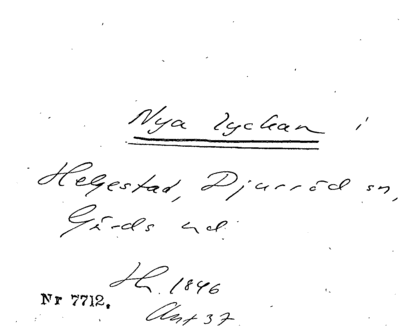 Nya lyckan i
Helgestad, Djurröd sn,
Gärds hd.
Hr. 1846
Ant 37
Nr 7712.